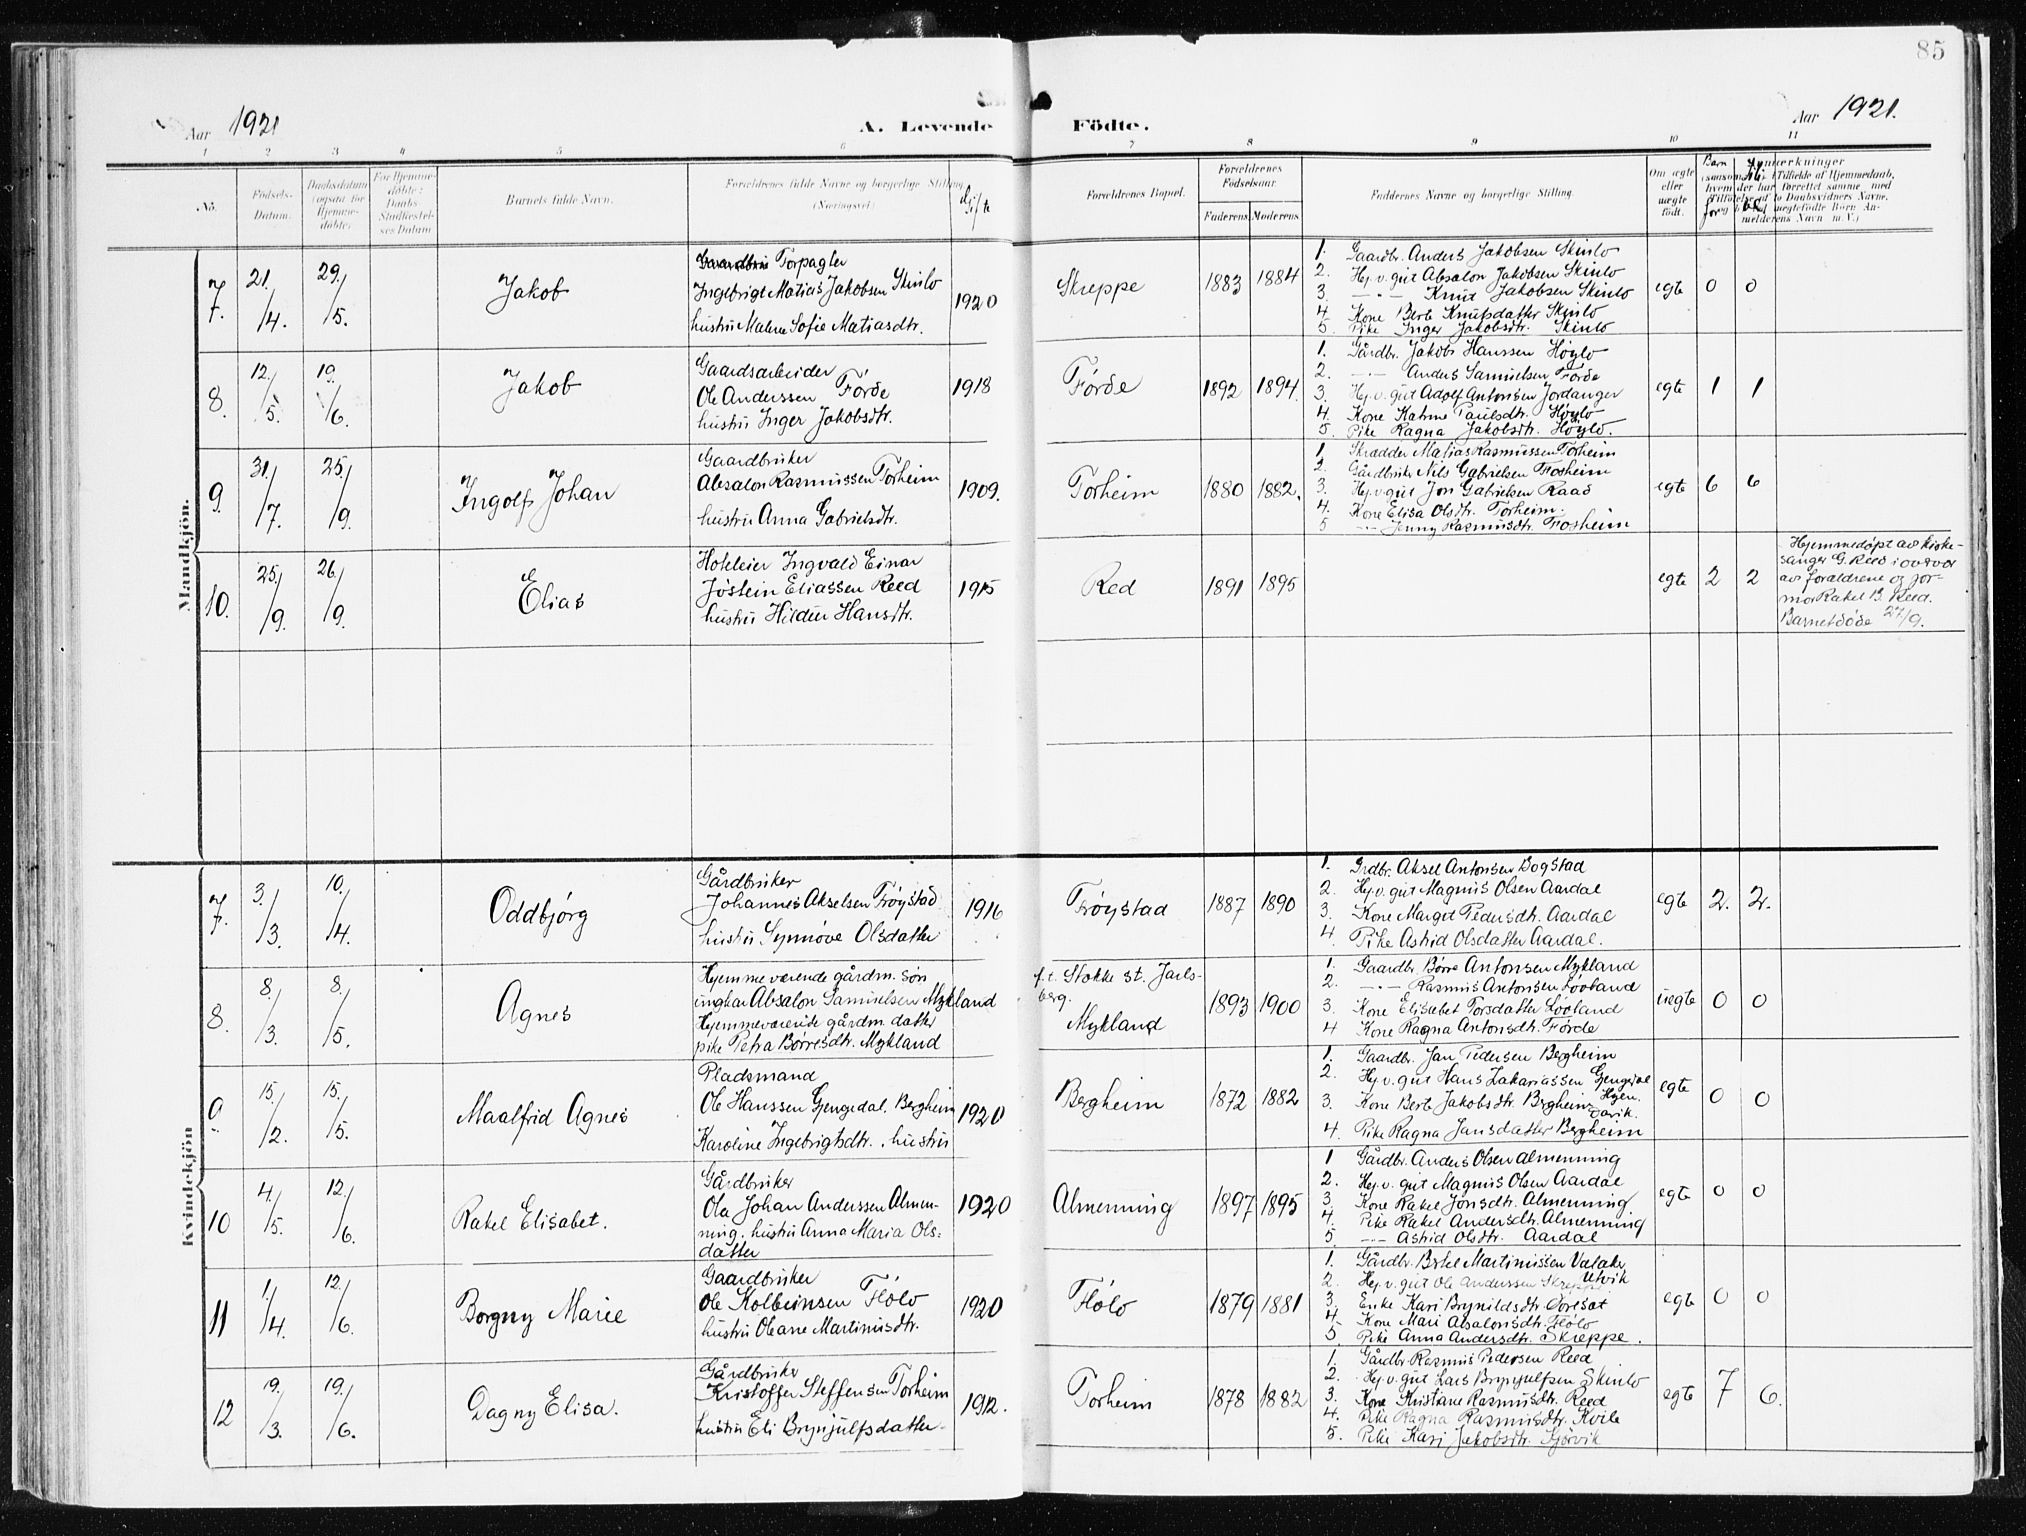 85
Aar 1921 A. Levende Födte. Aar 1921.
1 2 3 4 5 6 7 8 9 10 11
No. Födsels-Datum. Daabsdatum (ogsaa for Hjemme-døbte) For Hjemme-døbte: Daabs-Stadfæstel-ses Datum Barnets fulde Navn. Forældrenes fulde Navne og borgerlige Stilling (Næringsvei) Gifte Forældrenes Bopæl. Forældrenes Födselsaar. Faderens Moderens Faddernes Navne og borgerlige Stilling. Om ægte eller uægte födt. Anmerkninger
Mandkjön.
7. 21/4. 29/5. Jakob
Gaardbru Forpagter
Ingebrigt Matias Jakobsen Skinlo
hustru Malene Sofie Matiasdtr.
1920 Skreppe 1883 1884
1. Gaardbr. Anders Jakobsen Skinlo
2. Hj.v. gut Absalon Jakobsen Skinlo
3. —"— Knut Jakobsen Skinlo
4. Kone Berte Knutsdatter Skinlo
5. Pike Inger Jakobsdtr. Skinlo
egte 0 0
8. 12/5. 19./6. Jakob
Gaardsarbeider
Ole Anderssen Förde
hustru Inger Jakobsdtr.
1918 Förde 1892 1894.
1. Gårdbr. Jakob Hanssen Höylo
2. —"— Anders Samuelsen Förde
3. Hj.v. gut Adolf Antonsen Jordanger
4. Kone Katrine Paulsdtr. Höylo
5. Pike Ragna Jakobsdtr. Höylo.
egte 1 1
9. 31/7. 25/9. Ingolf Johan
Gaardbruker
Absalon Rasmussen Torheim
hustru Anna Gabrielsdtr.
1909. Torheim 1880 1882.
1. Skrædder Matias Rasmussen Torheim
2. Gårdbruker Nils Gabrielsen Frosheim
3. Hj.v. gut Jon Gabrielsen Raad
4. Kone Elisa Olsdtr. Torheim.
5 —"— Jenny Rasmusdtr. Frosheim
egte 6 6
10. 25/9. 26/9. Elias
Hoteleier Ingvald Einar
Jóstein Eliassen Reed
hustru Hildur Hansdtr.
1915 Red 1891 1895 egte 2 2
Hjemmedöpt av kirke-
sanger G. Reed i overvær
av foraldrene og for-
mor Rakel B. Reed.
Barnet döde 27/9.
Kvindekjön
7. 3./3. 10./4. Oddbjörg
Gårdbruker
Johannes Akselsen Fröystad
hustru Synnöve Olsdatter
1916 Fröystad 1887 1890
1. Grdbr. Aksel Antonsen Bogstad
2. Hj.v. gut Magnus Olsen Aardal
3. Kone Margot Pedersdtr. Aardal
4. Pike Astrid Olsdatter Aardal.
egte 2. 2.
8. 8./3. 8./5. Agnes
Hjemmeværende gårdm. søn
ungkar Absalon Samuelsen Mykland
Hjemmeværende gårdm. datter
pike Petra Börresdtr. Mykland
f.t. Stokke st. Jarls-
berg.
Mykland
1893 1900
1. Gaardbr. Börre Antonsen Mykland
2. —"— Rasmus Antonsen Lötland
3. Kone Elisabet Torsdatter Lötland
4 Kone Ragna Antonsdtr. Förde
uegte 0 0
9. 15./2. 15./5. Maalfrid Agnes
Pladsmand
Ole Hanssen Gjengedal, Bergheim
Karoline Ingebrigtsdtr., hustru
1920 Bergheim 1872 1882
1. Gaardbr. Jan Pedersen Bergheim
2. Hj.v. gut Hans Zakariassen Gjengedal
3. Kone Berte Jakobsdtr. Bergheim
4. Pike Ragna Jansdatter Bergheim
egte 0 0
10 4./5. 12./6. Rakel Elisabet.
Gårdbruker
Ola Johan Anderssen Almen-
ning. hustru Anna Maria Ols:
datter
1920 Almenning 1897 1895
1 Gårdbr. Anders Olsen Almenning
2. Hj.v. gut Magnus Olsen Aardal
3. Kone Rakel Jonsdtr. Almenning.
4. Pike Rakel Andersdtr. Almenning
5. —"— Astrid Olsdtr. Aardal
egte 0 0
11 1/4. 12./6. Borgny Marie
Gaardbruker
Ole Kolbeinsen Flölo
hustru Oleane Martinusdtr.
1920 Flölo 1879 1881
1. Gårdbr. Bertel Martinussen Valaker
Utvik
2. Hj.v. gut Ole Anderssen Skreppe
3. Enke Kari Brynildsdtr.
4. Kone Mari Absalonsdtr. Flölo
5. Pike Anna Andersdtr. Skreppe.
egte 0 0
12 19./3. 19./6. Dagny Elisa.
Gårdbruker
Kristoffer Steffensen Torheim
hustru Eli Brynjulfsdatter.
1912. Torheim 1878 1882
1. Gårdbr. Rasmus Pedersen Reed
2. Hj.v. gut Lars Brynjulfsen Skinlo
3. Kone Kristiane Rasmusdtr. Reed
4. Pike Ragna Rasmusdtr. Kvile
5. Pike Kari Jakobsdtr. Sjörvik
egte 7 6.